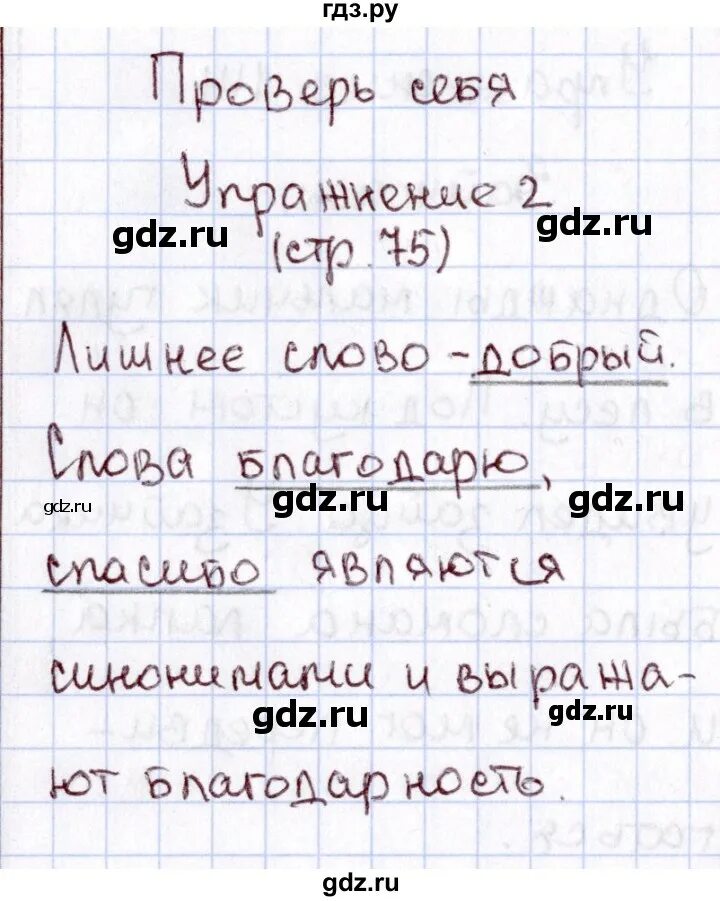 гдз.ру
Проверь себя
Упражнение 2
gdz.ru
gdz.ru
(стр. 75)
Лишнее слово - добрый.
Слова благодарю,
gdz.ru
gdz.ru
gdz.ru
спасибо являются
синонимами и выража-
gdz.ru
gdz.ru
ют благодарность.
gdz.ru